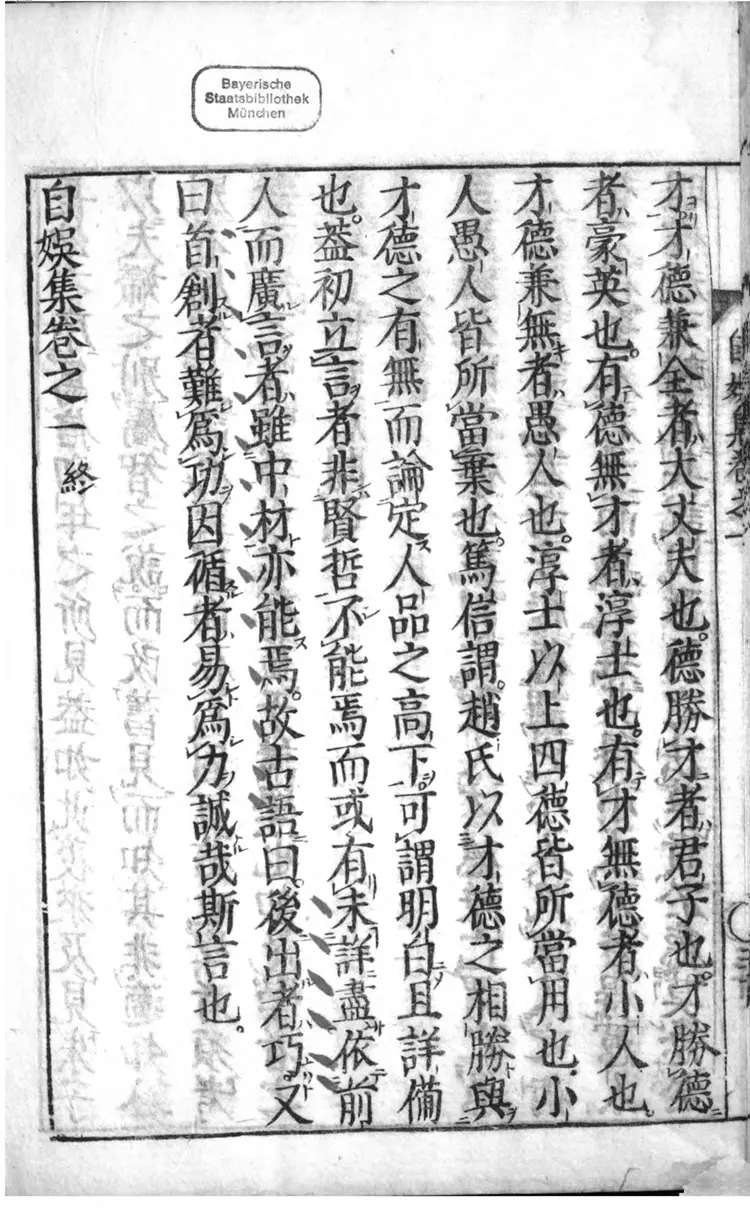 Bayerische
Staatsbibliothek
München
才才德兼全者大丈夫也德勝才者君子也才勝德
者豪英也有德無才者淳士也有才無德者小人也
才德兼無者愚人也淳士以上四德皆所當用也小
人愚人皆所當棄也篤信謂趙氏以才德之相勝與
才德之有無而論定人品之高下可謂明白且詳備
也蓋初立言者非賢哲不能焉而或有未詳盡依前
人而廣言者雖中材亦能焉故古語曰後出者巧又
曰首創者難爲功因循者易爲力誠哉斯言也
自娛集卷之一 終